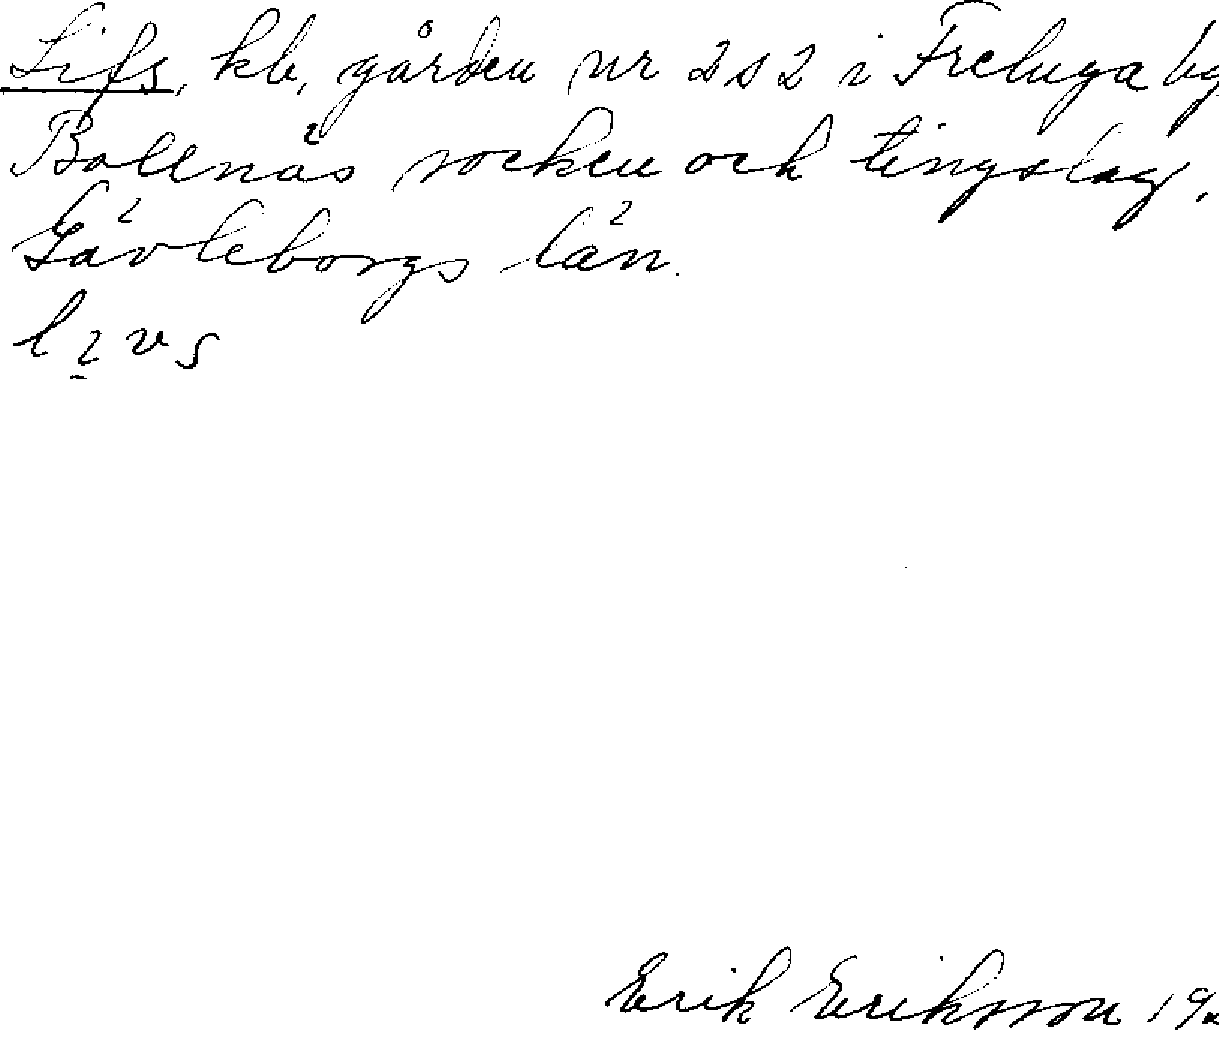 Lifs, kb, gården nr 2 s 2 i Freluga by
Bollnäs socken och tingslag,
Gävleborgs län.
Erik Eriksson 19